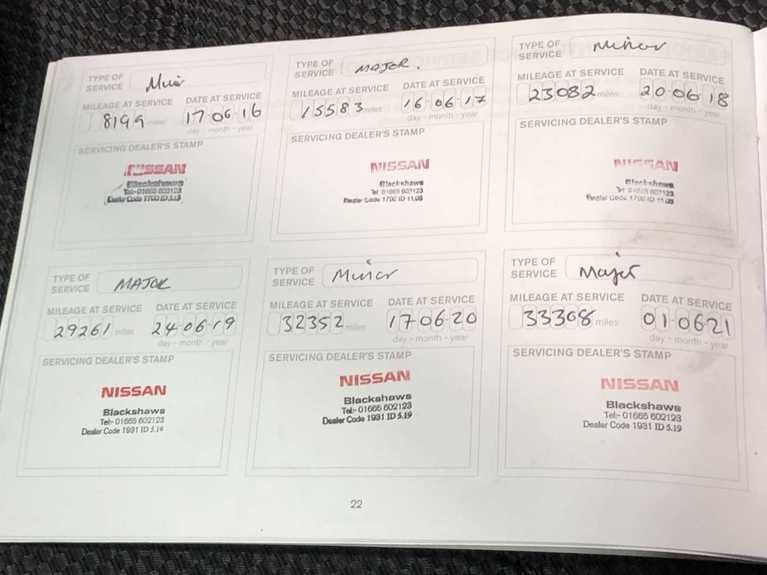 TYPE OF SERVICE
MILEAGE AT SERVICE DATE AT SERVICE
8199 miles 17 06 16
day - month - year
SERVICING DEALER'S STAMP
NISSAN
Blackshaws
Tel:- 01665 602123
Dealer Code 1700 ID
TYPE OF SERVICE MAJOR.
MILEAGE AT SERVICE DATE AT SERVICE
15583 miles 16 06 17
day - month - year
SERVICING DEALER'S STAMP
NISSAN
Blackshaws
Tel 01665 602123
Dealer Code 1700 ID 11.08
TYPE OF SERVICE Minor
MILEAGE AT SERVICE DATE AT SERVICE
23082 miles 20 06 18
day - month - year
SERVICING DEALER'S STAMP
NISSAN
Blackshaws
Tel 01665 602123
Dealer Code 1700 ID 11.08
TYPE OF SERVICE MAJOR
MILEAGE AT SERVICE DATE AT SERVICE
29261 miles 24 06 19
day - month - year
SERVICING DEALER'S STAMP
NISSAN
Blackshaws
Tel:- 01665 602123
Dealer Code 1931 ID
TYPE OF SERVICE Minor
MILEAGE AT SERVICE DATE AT SERVICE
32352 miles 17 06 20
day - month - year
SERVICING DEALER'S STAMP
NISSAN
Blackshaws
Tel:- 01665 602123
Dealer Code 1931 ID 5.19
TYPE OF SERVICE Major
MILEAGE AT SERVICE DATE AT SERVICE
33308 miles 01 06 21
day - month - year
SERVICING DEALER'S STAMP
NISSAN
Blackshaws
Tel:- 01665 602123
Dealer Code 1931 ID 5.19
22